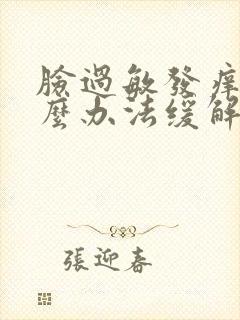 臉過敏發痒
麼办法缓解
張迎春